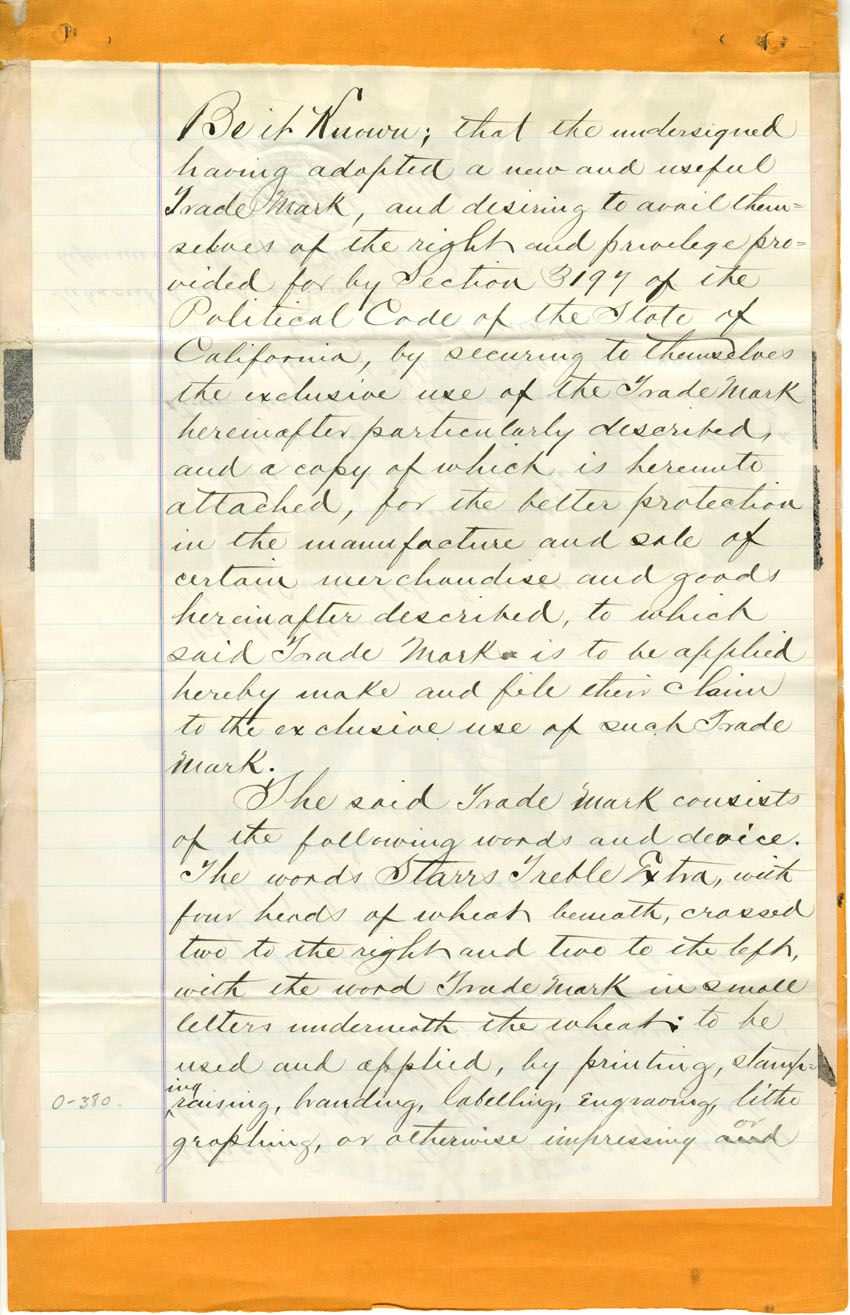 Be it Known; that the undersigned
having adopted a new and useful
Trade Mark, and desiring to avail them=
selves of the right and privilege pro=
vided for by Section 3197 of the
Political Code of the State of
California, by securing to themselves
the exclusive use of the Trade Mark
hereinafter particularly described,
and a copy of which is hereunto
attached, for the better protection
in the manufacture and sale of
certain merchandise and goods
hereinafter described, to which
said Trade Mark is to be applied
hereby make and file their claim
to the exclusive use of such Trade
Mark.
The said Trade Mark consists
of the following words and device.
The words Starrs Treble Extra, with
four heads of wheat beneath, crossed
two to the right and two to the left,
with the word Trade Mark in small
letters underneath the wheat: to be
used and applied, by printing, stamp=
ing
raising, branding, labelling, engraving, litho
graphing, or otherwise impressing and
or
0-380